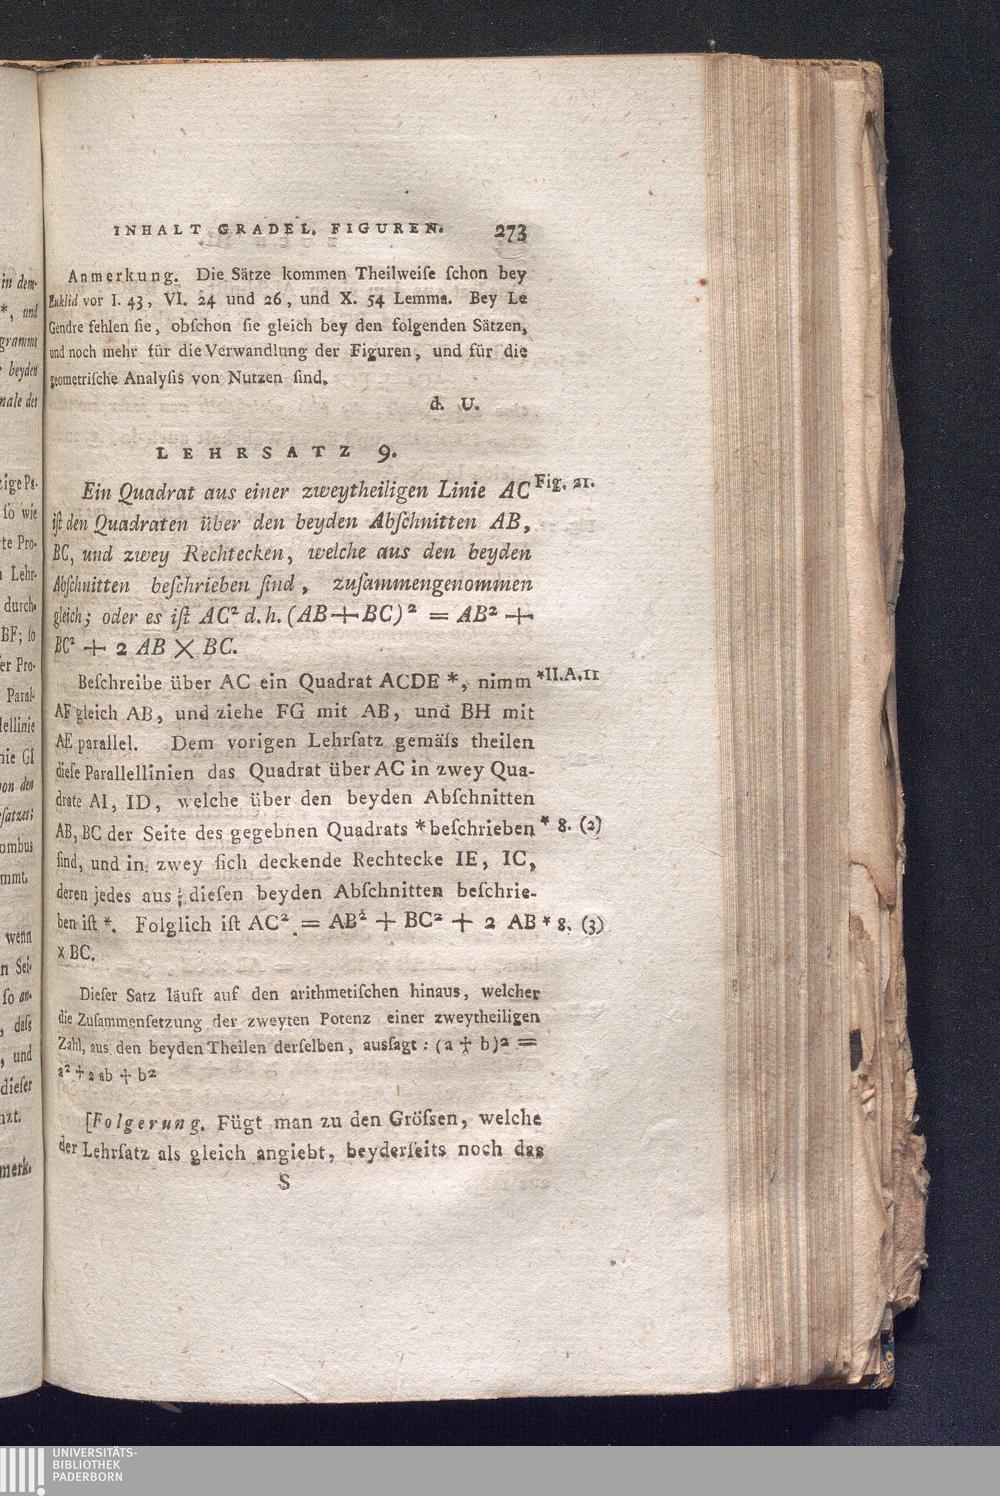 in dem-
*, und
gramms
beyden
nale des
zige Pa-
ſo wie
te Pro-
Lehr-
durch-
BF; ſo
er Pro-
Paral-
lellinie
nie GI
von den
ſatzes;
ombus
mmt.
wenn
n Sei-
ſo an-
, daſs
, und
dieſer
nzt.
merk.
INHALT GRADEL. FIGUREN. 273
Anmerkung. Die Sätze kommen Theilweiſe ſchon bey
Euklid vor I. 43, VI. 24 und 26, und X. 54 Lemma. Bey Le
Gendre fehlen ſie, obſchon ſie gleich bey den folgenden Sätzen,
und noch mehr für die Verwandlung der Figuren, und für die
geometriſche Analyſis von Nutzen ſind.
d. U.
LEHRSATZ 9.
Ein Quadrat aus einer zweytheiligen Linie AC Fig. 21.
iſt den Quadraten über den beyden Abſchnitten AB,
BC, und zwey Rechtecken, welche aus den beyden
Abſchnitten beſchrieben ſind, zuſammengenommen
gleich; oder es iſt AC² d. h. (AB + BC)² = AB² +
BC² + 2 AB X BC.
Beſchreibe über AC ein Quadrat ACDE *, nimm *II.A.11
AF gleich AB, und ziehe FG mit AB, und BH mit
AE parallel. Dem vorigen Lehrſatz gemäſs theilen
dieſe Parallellinien das Quadrat über AC in zwey Qua-
drate AI, ID, welche über den beyden Abſchnitten
AB, BC der Seite des gegebnen Quadrats * beſchrieben * 8. (2)
ſind, und in zwey ſich deckende Rechtecke IE, IC,
deren jedes aus dieſen beyden Abſchnitten beſchrie-
ben iſt *. Folglich iſt AC² = AB² + BC² + 2 AB * 8. (3)
x BC.
Dieſer Satz läuft auf den arithmetiſchen hinaus, welcher
die Zuſammenſetzung der zweyten Potenz einer zweytheiligen
Zahl, aus den beyden Theilen derſelben, ausſagt: (a + b)² =
a² + 2 ab + b²
[Folgerung. Fügt man zu den Gröſsen, welche
der Lehrſatz als gleich angiebt, beyderſeits noch das
S
UNIVERSITÄTS-
BIBLIOTHEK
PADERBORN